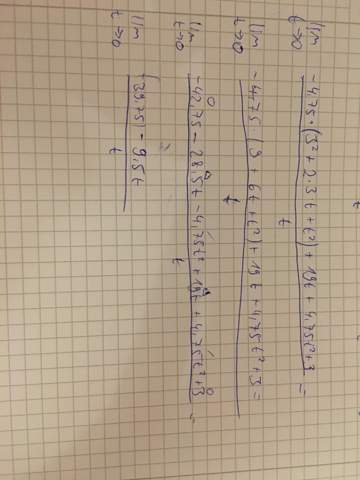 lim t→0 -4,75·(3²+2·3t+t²)+19t+4,75t²+3 / t =
lim t→0 -4,75·(9+6t+t²)+19t+4,75t²+3 / t =
lim t→0 -42,75-28,5t-4,75t²+19t+4,75t²+3 / t =
lim t→0 (39,75)-9,5t / t